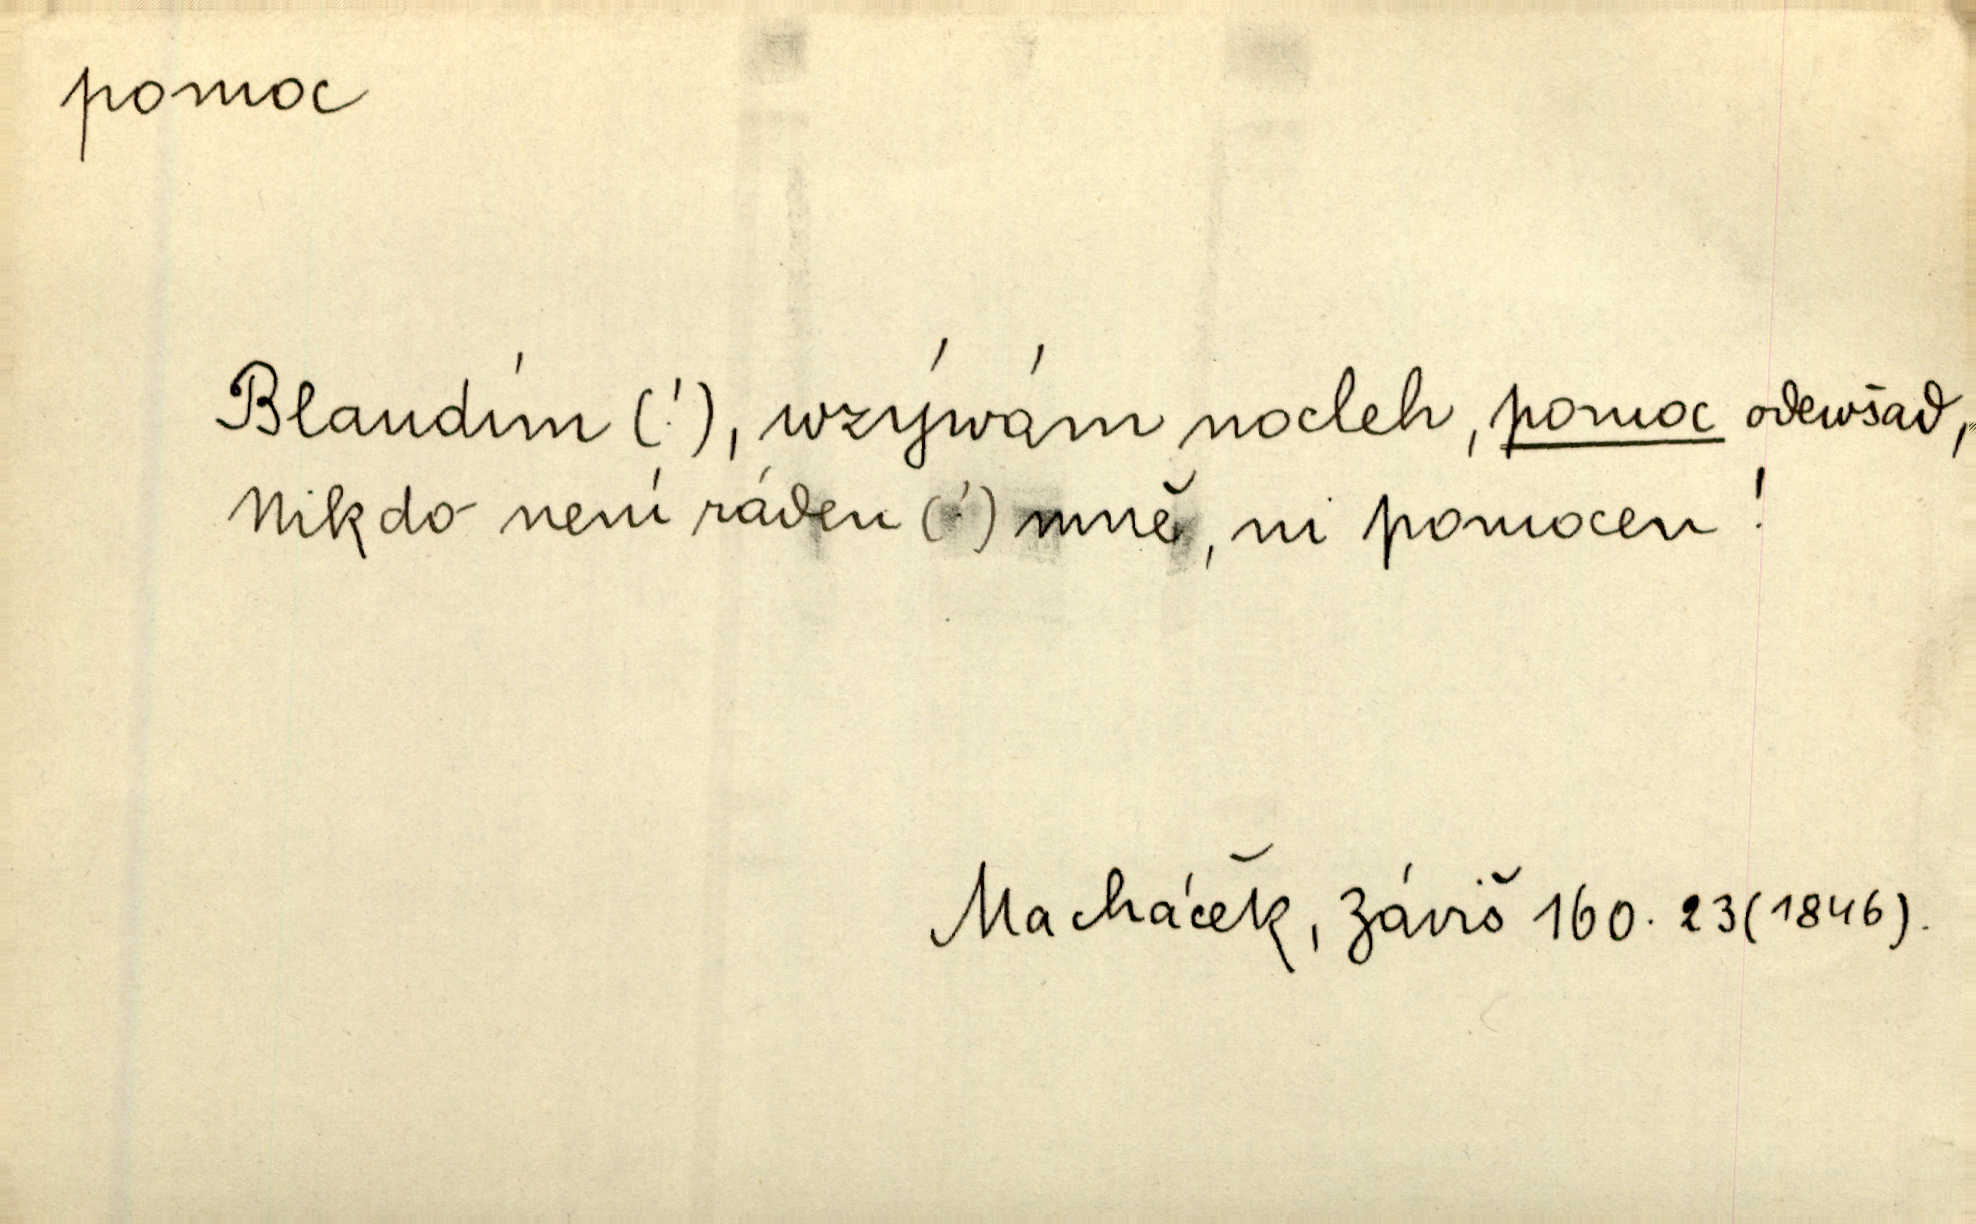 pomoc
Blaudím (!), wzýwám nocleh, pomoc odewšad,
Nikdo není ráden (!) mně, ni pomocen!
Macháček, Záviš 160. 23 (1846).